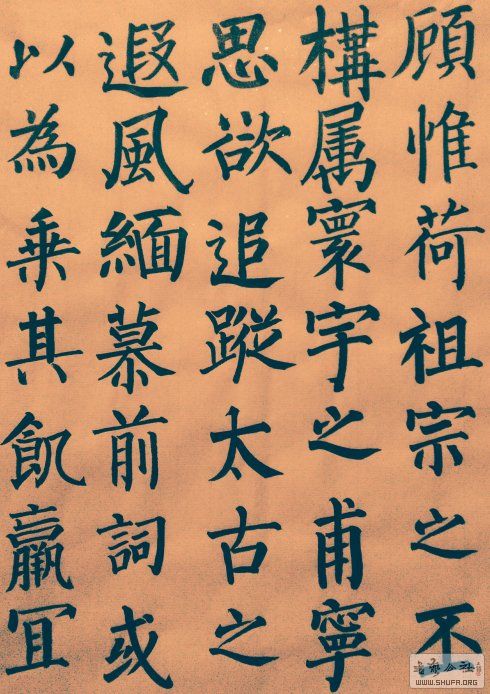 顾惟荷祖宗之不
構属寰宇之甫寧
思欲追蹤太古之
遐風緬慕前詞或
以為乗其飢羸冝
WWW.SHUFA.ORG